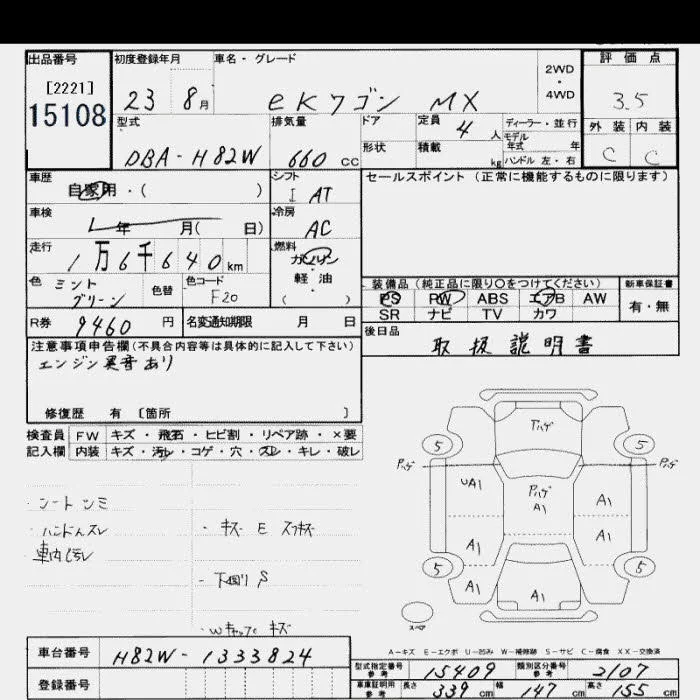 出品番号 初度登録年月 車名・グレード 評価点
[2221]
15108
23 8月 eKワゴン MX 2WD・4WD 3.5
型式 排気量 ドア 定員 4人 ディーラー・並行 外装 内装
DBA-H82W 660cc 形状 積載 kg モデル年式 年 C C
ハンドル 左・右
車歴 自家用・( ) シフト I AT セールスポイント (正常に機能するものに限ります)
車検 年 月( 日) 冷房 AC
走行 1万6千640km 燃料 ガソリン・軽油 ( )
色 ミントグリーン 色替 色コード F20
装備品 (純正品に限り○をつけてください) 新車保証書
PS PW ABS エアB AW 有・無
SR ナビ TV カワ
R券 9460円 名変通知期限 月 日
後日品 取扱説明書
注意事項申告欄(不具合内容等は具体的に記入して下さい)
エンジン異音あり
修復歴 有 [箇所 ]
検査員 FW キズ・飛石・ヒビ割・リペア跡・×要
記入欄 内装 キズ・汚レ・コゲ・穴・スレ・キレ・破レ
・シートシミ
・ハンドルスレ
・車内汚レ
・キズ E スリキズ
・下廻り S
・Wキャップ キズ
Pハゲ
5 5
Pハゲ Pハゲ
UA1 Pハゲ A1 A1
A1 A1
5 5
A1 A1
スペア
A-キズ E-エクボ U-凹み W-補修跡 S-サビ C-腐食 XX-交換済
車台番号 H82W-1333824
型式指定番号 参考 15409 類別区分番号 参考 2107
登録番号
車庫証明用 参考 長さ 339cm 幅 147cm 高さ 155cm